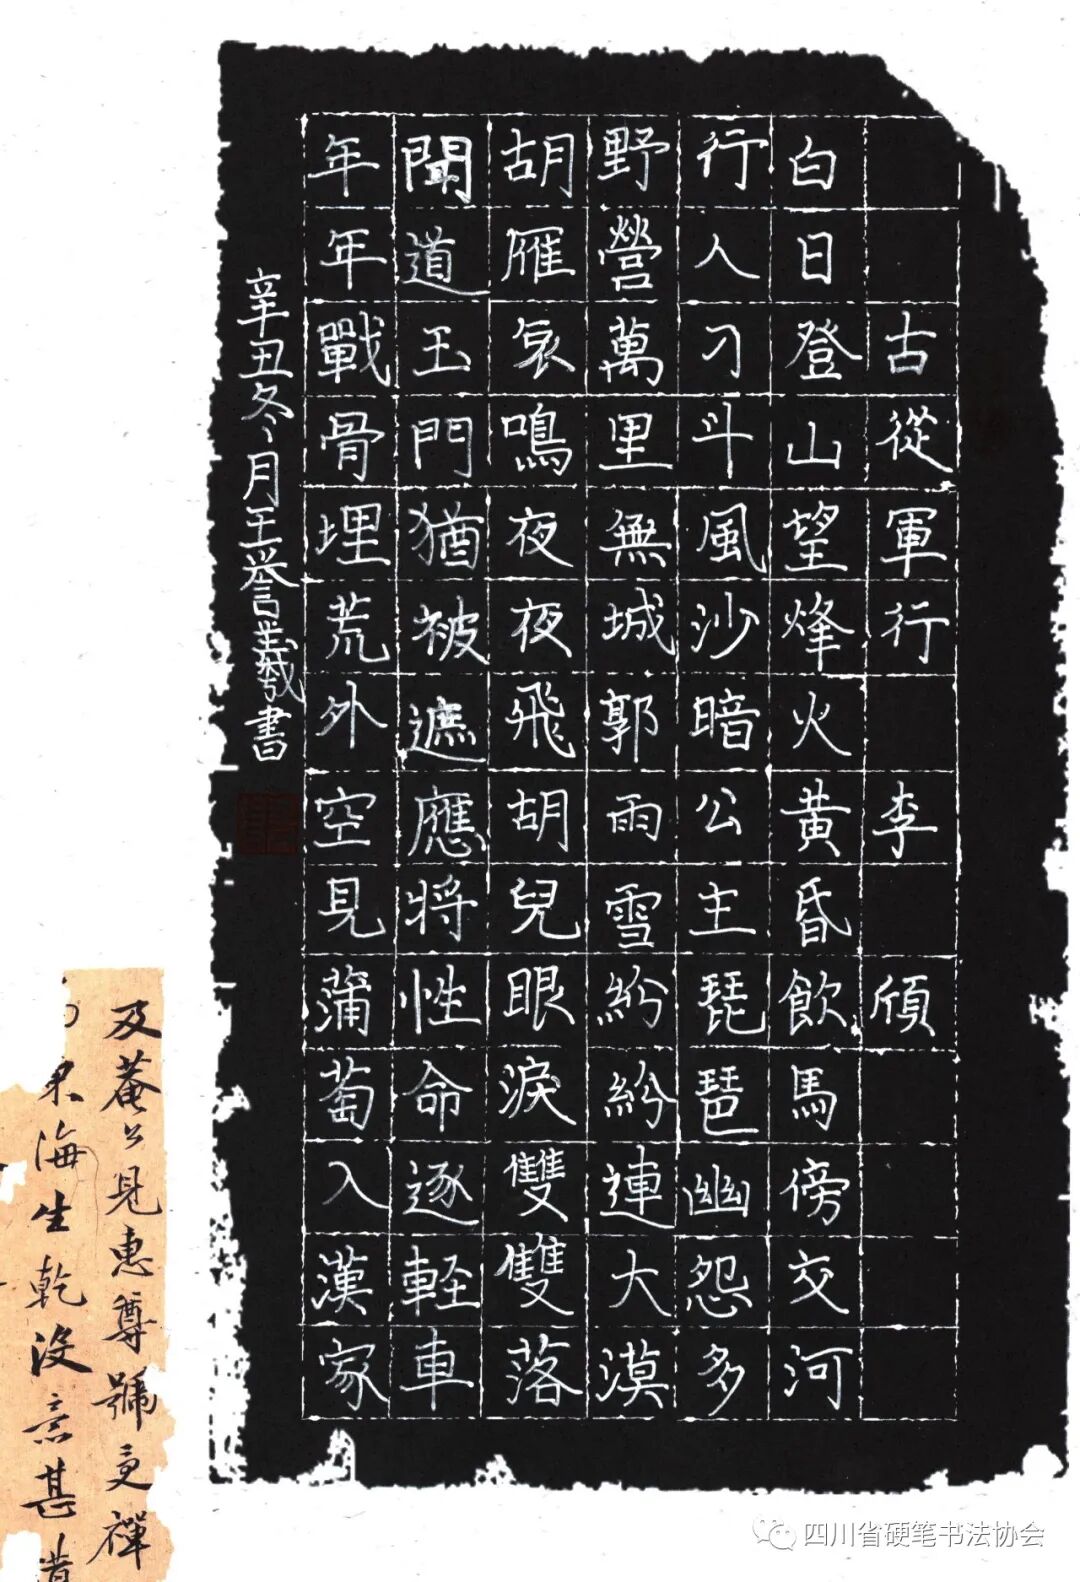 古從軍行 李 頎
白日登山望烽火黃昏飲馬傍交河
行人刁斗風沙暗公主琵琶幽怨多
野營萬里無城郭雨雪紛紛連大漠
胡雁哀鳴夜夜飛胡兒眼淚雙雙落
聞道玉門猶被遮應將性命逐軽車
年年戰骨埋荒外空見蒲萄入漢家
辛丑冬月王誉羲書
及菴公見惠尊號更禪
海生乾没意甚
四川省硬笔书法协会